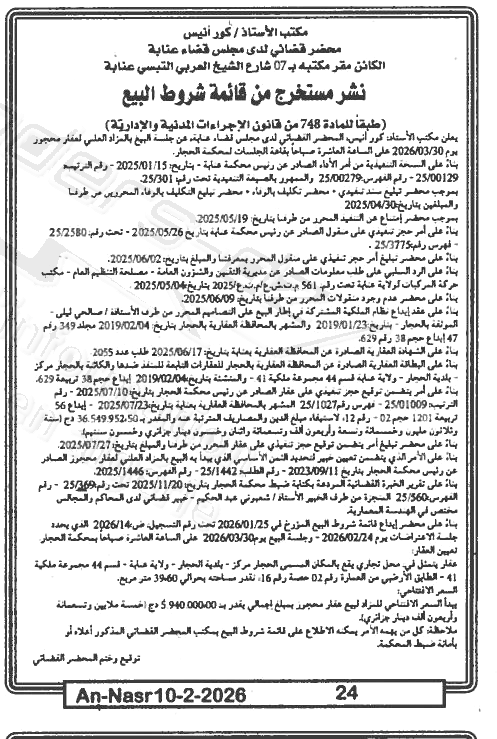 مكتب الأستاذ/ كور أنيس
محضر قضائي لدى مجلس قضاء عنابة
الكائن مقر مكتبه بـ 07 شارع الشيخ العربي التبسي عنابة
نشر مستخرج من قائمة شروط البيع
(طبقا للمادة 748 من قانون الإجراءات المدنية والإدارية)
يعلن مكتب الأستاذ: كور أنيس، المحضر القضائي لدى مجلس قضاء عنابة، عن جلسة البيع بالمزاد العلني لعقار محجوز
يوم 2026/03/30 على الساعة العاشرة صباحا بقاعة الجلسات لمحكمة الحجار.
بناءً على النسخة التنفيذية من أمر الأداء الصادر عن رئيس محكمة عنابة - بتاريخ: 2025/01/15 - رقم الترتيب:
25/00129 - رقم الفهرس: 25/00279 - والممهور بالصيغة التنفيذية تحت رقم: 25/301.
بموجب محضر تبليغ سند تنفيذي، محضر تكليف بالوفاء، محضر تبليغ التكليف بالوفاء المحررين من طرفنا
والمبلغين بتاريخ: 2025/04/30
بموجب محضر إمتناع عن التنفيذ المحرر من طرفنا بتاريخ: 2025/05/19.
بناءً على أمر حجز تنفيذي على منقول الصادر عن رئيس محكمة عنابة بتاريخ 2025/05/26 - تحت رقم: 25/2580
- فهرس رقم: 25/3775.
بناءً على محضر تبليغ أمر حجز تنفيذي على منقول المحرر بمعرفتنا والمبلغ بتاريخ: 2025/06/02.
بناءً على الرد السلبي على طلب معلومات الصادر عن مديرية التقنين والشؤون العامة - مصلحة التنظيم العام - مكتب
حركة المركبات لولاية عنابة تحت رقم: 561 2025 بتاريخ: 2025/05/04
بناءً على محضر عدم وجود منقولات المحرر من طرفنا بتاريخ: 2025/06/09.
بناءً على عقد إيداع نظام الملكية المشتركة في إطار البيع على التصاميم المحرر من طرف الأستاذة / صالحي ليلى -
الموثقة بالحجار - بتاريخ: 2019/01/23 والمشهر بالمحافظة العقارية بالحجار بتاريخ: 2019/02/04 مجلد 349 رقم
47 إيداع حجم 38 رقم 629.
بناءً على الشهادة العقارية الصادرة عن المحافظة العقارية بعنابة بتاريخ: 2025/06/17 طلب عدد 2055
بناءً على البطاقة العقارية الصادرة عن المحافظة العقارية بالحجار للعقارات التابعة للمنفذ ضدها والكائنة بالحجار مركز
- بلدية الحجار - ولاية عنابة قسم 44 مجموعة ملكية 41 - والمنشئة بتاريخ: 2019/02/04 إيداع حجم 38 تربيعة 629.
بناءً على أمر يتضمن توقيع حجز تنفيذي على عقار الصادر عن رئيس محكمة الحجار بتاريخ: 2025/07/10 - رقم
الترتيب: 25/01009 - فهرس رقم 25/1027 المشهر بالمحافظة العقارية بعنابة بتاريخ: 2025/07/23 - إيداع 56
تربيعة 1201 حجم 02 - رقم 12، لاستيفاء مبلغ الدين والمصاريف المترتبة عنه والمقدر بـ 36.549.952,50 دج (ستة
وثلاثون مليون وخمسمائة وتسعة وأربعون ألف وتسعمائة واثنان وخمسون دينار جزائري وخمسون سنتيم).
بناءً على محضر تبليغ أمر يتضمن توقيع حجز تنفيذي على عقار المحرر من طرفنا والمبلغ بتاريخ: 2025/07/27.
بناءً على الأمر الذي يتضمن تعيين خبير لتحديد الثمن الأساسي الذي يبدأ به البيع بالمزاد العلني لعقار محجوز الصادر
عن رئيس محكمة الحجار بتاريخ 2023/09/11 - رقم الطلب: 25/1442 - رقم الفهرس: 25/1446.
بناءً على تقرير الخبرة القضائية المودعة بكتابة ضبط محكمة الحجار بتاريخ: 2025/11/20 - تحت رقم: 25/369 - رقم
الفهرس: 25/560 المنجزة من طرف الخبير الأستاذ / شعبوني عبد الحكيم - خبير قضائي لدى المحاكم والمجالس
مختص في الهندسة المعمارية.
بناءً على محضر إيداع قائمة شروط البيع المؤرخ في 2026/01/25 تحت رقم التسجيل، ض: 2026/14 الذي يحدد
جلسة الاعتراضات يوم 2026/02/24 - وجلسة البيع يوم 2026/03/30 على الساعة العاشرة صباحا بمحكمة الحجار.
تعيين العقار:
عقار يتمثل في محل تجاري يقع بالمكان المسمى الحجار مركز - بلدية الحجار - ولاية عنابة - قسم 44 مجموعة ملكية
41 - الطابق الأرضي من العمارة رقم 02 حصة رقم 16، تقدر مساحته بحوالي 39.60 متر مربع.
السعر الافتتاحي:
يبدأ السعر الافتتاحي للمزاد لبيع عقار محجوز بمبلغ إجمالي يقدر بـ 5 940 000.00 دج (خمسة ملايين وتسعمائة
وأربعون ألف دينار جزائري).
ملاحظة: كل من يهمه الأمر يمكنه الاطلاع على قائمة شروط البيع بمكتب المحضر القضائي المذكور أعلاه أو
بأمانة ضبط المحكمة.
توقيع وختم المحضر القضائي
An-Nasr10-2-2026 24